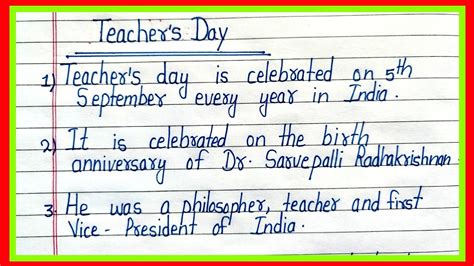 Teacher's Day
1) Teacher's day is celebrated on 5th
September every year in India.
2) It is celebrated on the birth
anniversary of Dr. Sarvepalli Radhakrishnan
3 He was a philosopher, teacher and first
Vice - President of India.